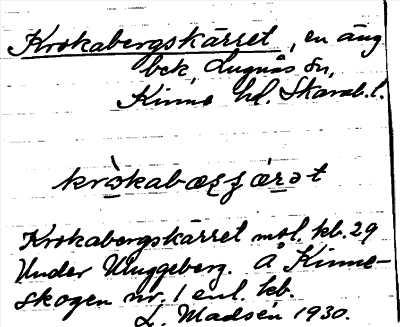 Krokabergskärret, en äng
bek, Lugnås sn,
Kinne hd. Skarab. l.
krɔ̀skabæʂʂɶ́rət
Krokabergskärret mol. kb. 29
Under Uluggeberg. Å Kinne-
skogen nr. 1 enl. kb.
L. Madsén 1930.